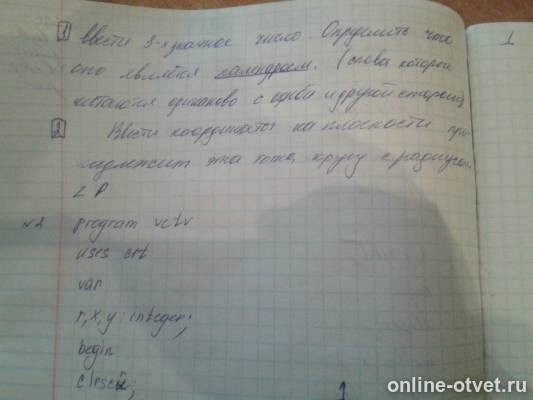 1 Ввести 3-х значное число Определить что
оно является палиндром. (слова которое
читаются одинаково с одной и другой стороны)
2 Ввести координаты на плоскости при
надлежит эта точка кругу с радиусом
2 Р
№2 program vctv
uses crt
var
r, x, y: integer;
begin
clrscr;
1
1
online-otvet.ru